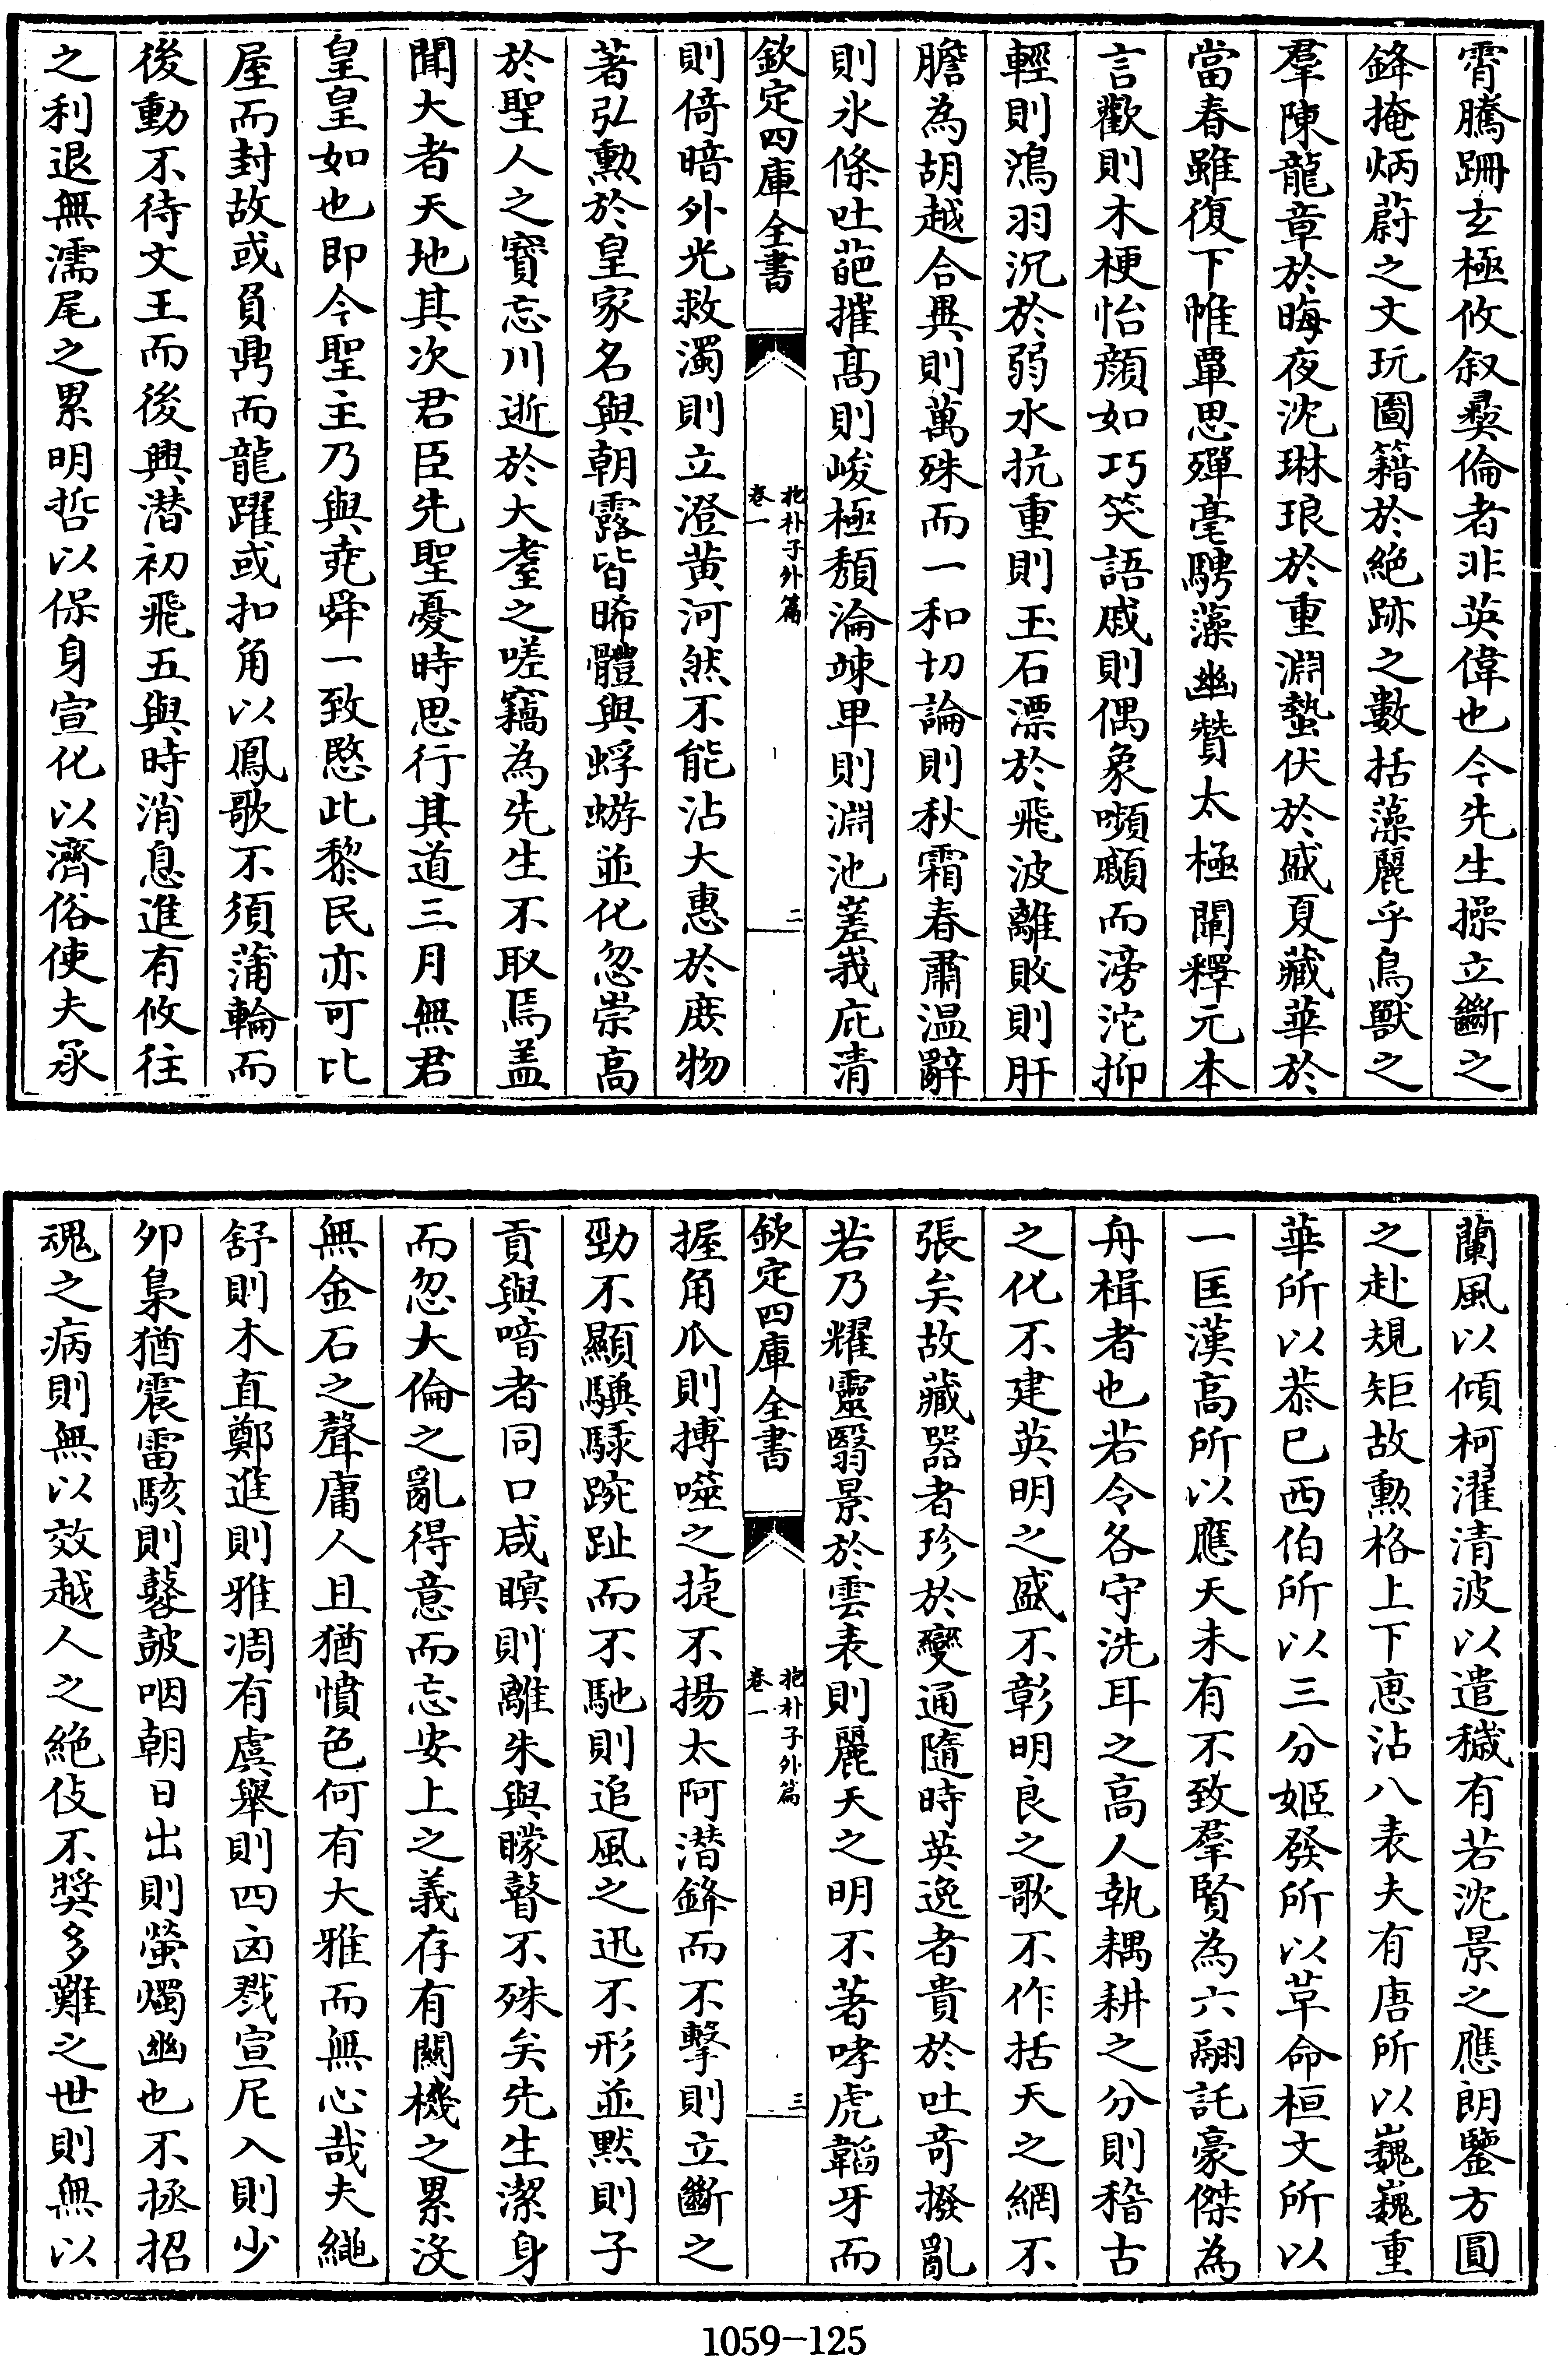 霄騰跚玄極攸叙彛倫者非英偉也今先生操立斷之
鋒掩炳蔚之文玩圖籍於絶跡之數括藻麗乎鳥獸之
羣陳龍章於晦夜沈琳琅於重淵蟄伏於盛夏藏華於
當春雖復下帷覃思殫毫騁藻幽贊太極闡釋元本
言歡則木梗怡顔如巧笑語戚則偶象嚬顣而滂沱抑
輕則鴻羽沉於弱水抗重則玉石漂於飛波離敗則肝
膽為胡越合異則萬殊而一和切論則秋霜春肅温辭
則氷條吐葩摧髙則峻極頽淪竦卑則淵池嵳峩庇清
欽定四庫全書
抱朴子外篇
卷一
二
則倚暗外光救濁則立澄黄河然不能沾大惠於庶物
著弘勲於皇家名與朝露皆晞體與蜉蝣並化忽崇高
於聖人之寳忘川逝於大耋之嗟竊為先生不取焉盖
聞大者天地其次君臣先聖憂時思行其道三月無君
皇皇如也即今聖主乃與堯舜一致愍此黎民亦可比
屋而封故或負鼎而龍躍或扣角以鳳歌不須蒲輪而
後動不待文王而後興潜初飛五與時消息進有攸往
之利退無濡尾之累明哲以保身宣化以濟俗使夫承
蘭風以傾柯濯清波以遣穢有若沈景之應朗鑒方圓
之赴規矩故勲格上下惠沾八表夫有唐所以巍巍重
華所以恭已西伯所以三分姬發所以革命桓文所以
一匡漢高所以應天未有不致羣賢為六翮託豪傑為
舟楫者也若令各守洗耳之高人執耦耕之分則稽古
之化不建英明之盛不彰明良之歌不作括天之網不
張矣故藏器者珍於變通隨時英逸者貴於吐竒撥亂
若乃耀靈翳景於雲表則麗天之明不著哮虎韜牙而
欽定四庫全書
抱朴子外篇
卷一
三
握角爪則搏噬之㨗不揚太阿潜鋒而不擊則立斷之
勁不顯驥騄踠趾而不馳則追風之迅不形並黙則子
貢與喑者同口咸瞑則離朱與矇瞽不殊矣先生潔身
而忽大倫之亂得意而忘安上之義存有關機之累没
無金石之聲庸人且猶憤色何有大雅而無心哉夫繩
舒則木直鄭進則雅凋有虞舉則四凶戮宣尼入則少
卯梟猶震雷駭則鼛鼓咽朝日出則螢燭幽也不拯招
魂之病則無以效越人之絶伎不奬多難之世則無以
1059－125